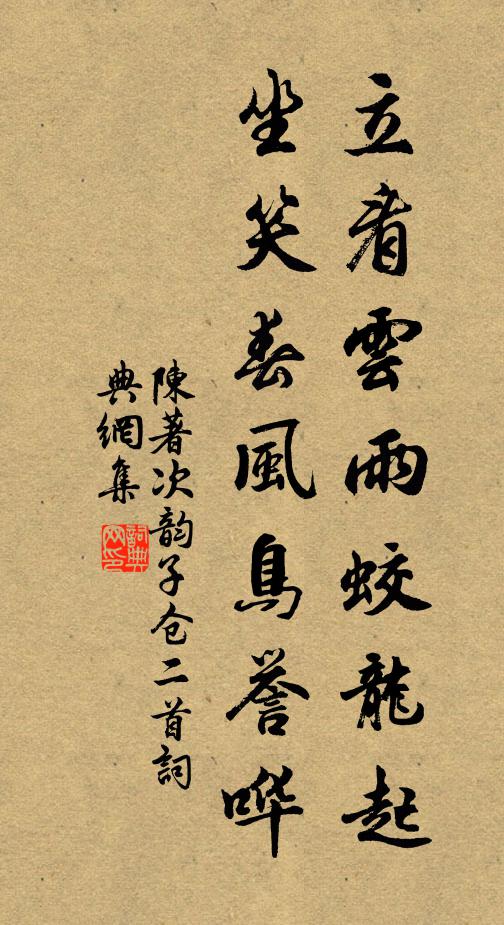 立看雲雨蛟龍起
坐笑春風鳥誉哗
陳著次韵子仓二首詞
典網集
詞典
网印